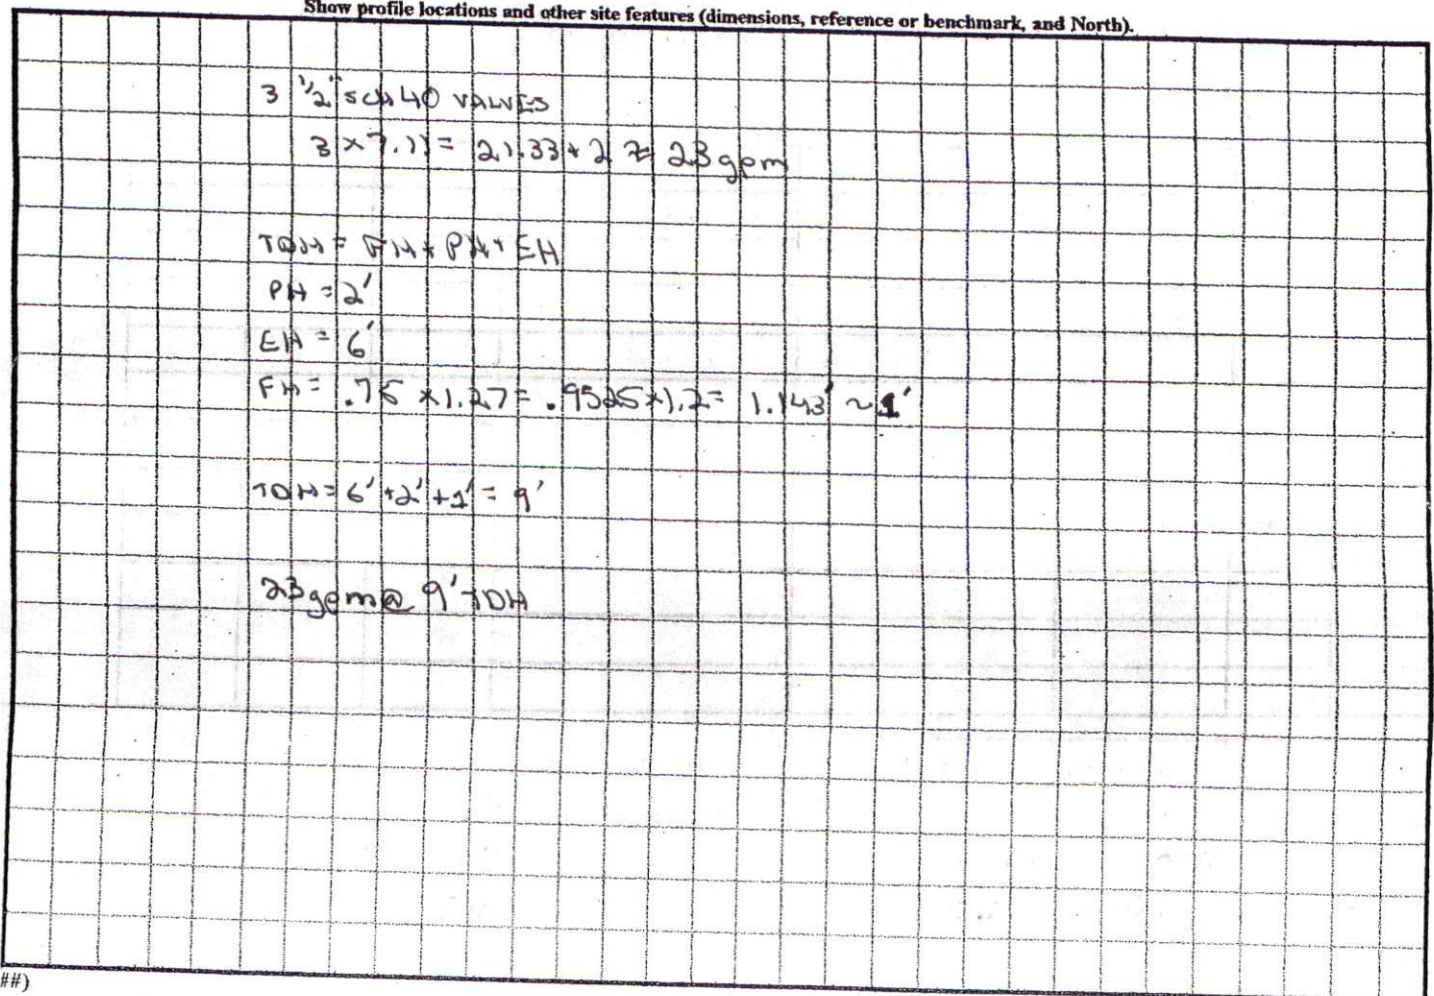 Show profile locations and other site features (dimensions, reference or benchmark, and North).
3 1/2" sch 40 VALVES
3 x 7.11 = 21.33 + 2 ≈ 23 gpm
TDH = FH + PH + EH
PH = 2'
EH = 6'
FH = .75 x 1.27 = .9525 x 1.2 = 1.143' ~ 1'
TDH = 6' + 2' + 1' = 9'
23 gpm @ 9' TDH
##)